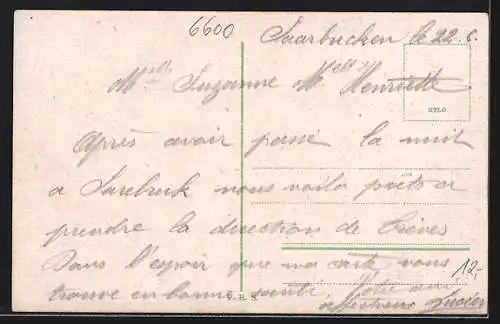 6600
Saarbucken le 22.6.
Melle Suzanne Melle Henriette
STLO.
Après avoir passé la nuit
a Sarebruk nous voila prets a
prendre la direction de Trèves
Dans l'espoir que ma carte vous 12,-
trouve en bonne santé. Votre ami
affectueux Lucien
R. S.